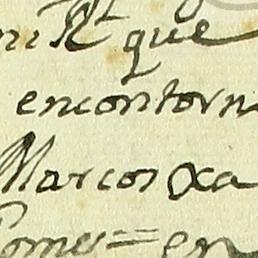 que
encontorn
Marcos xa
Gomes = en